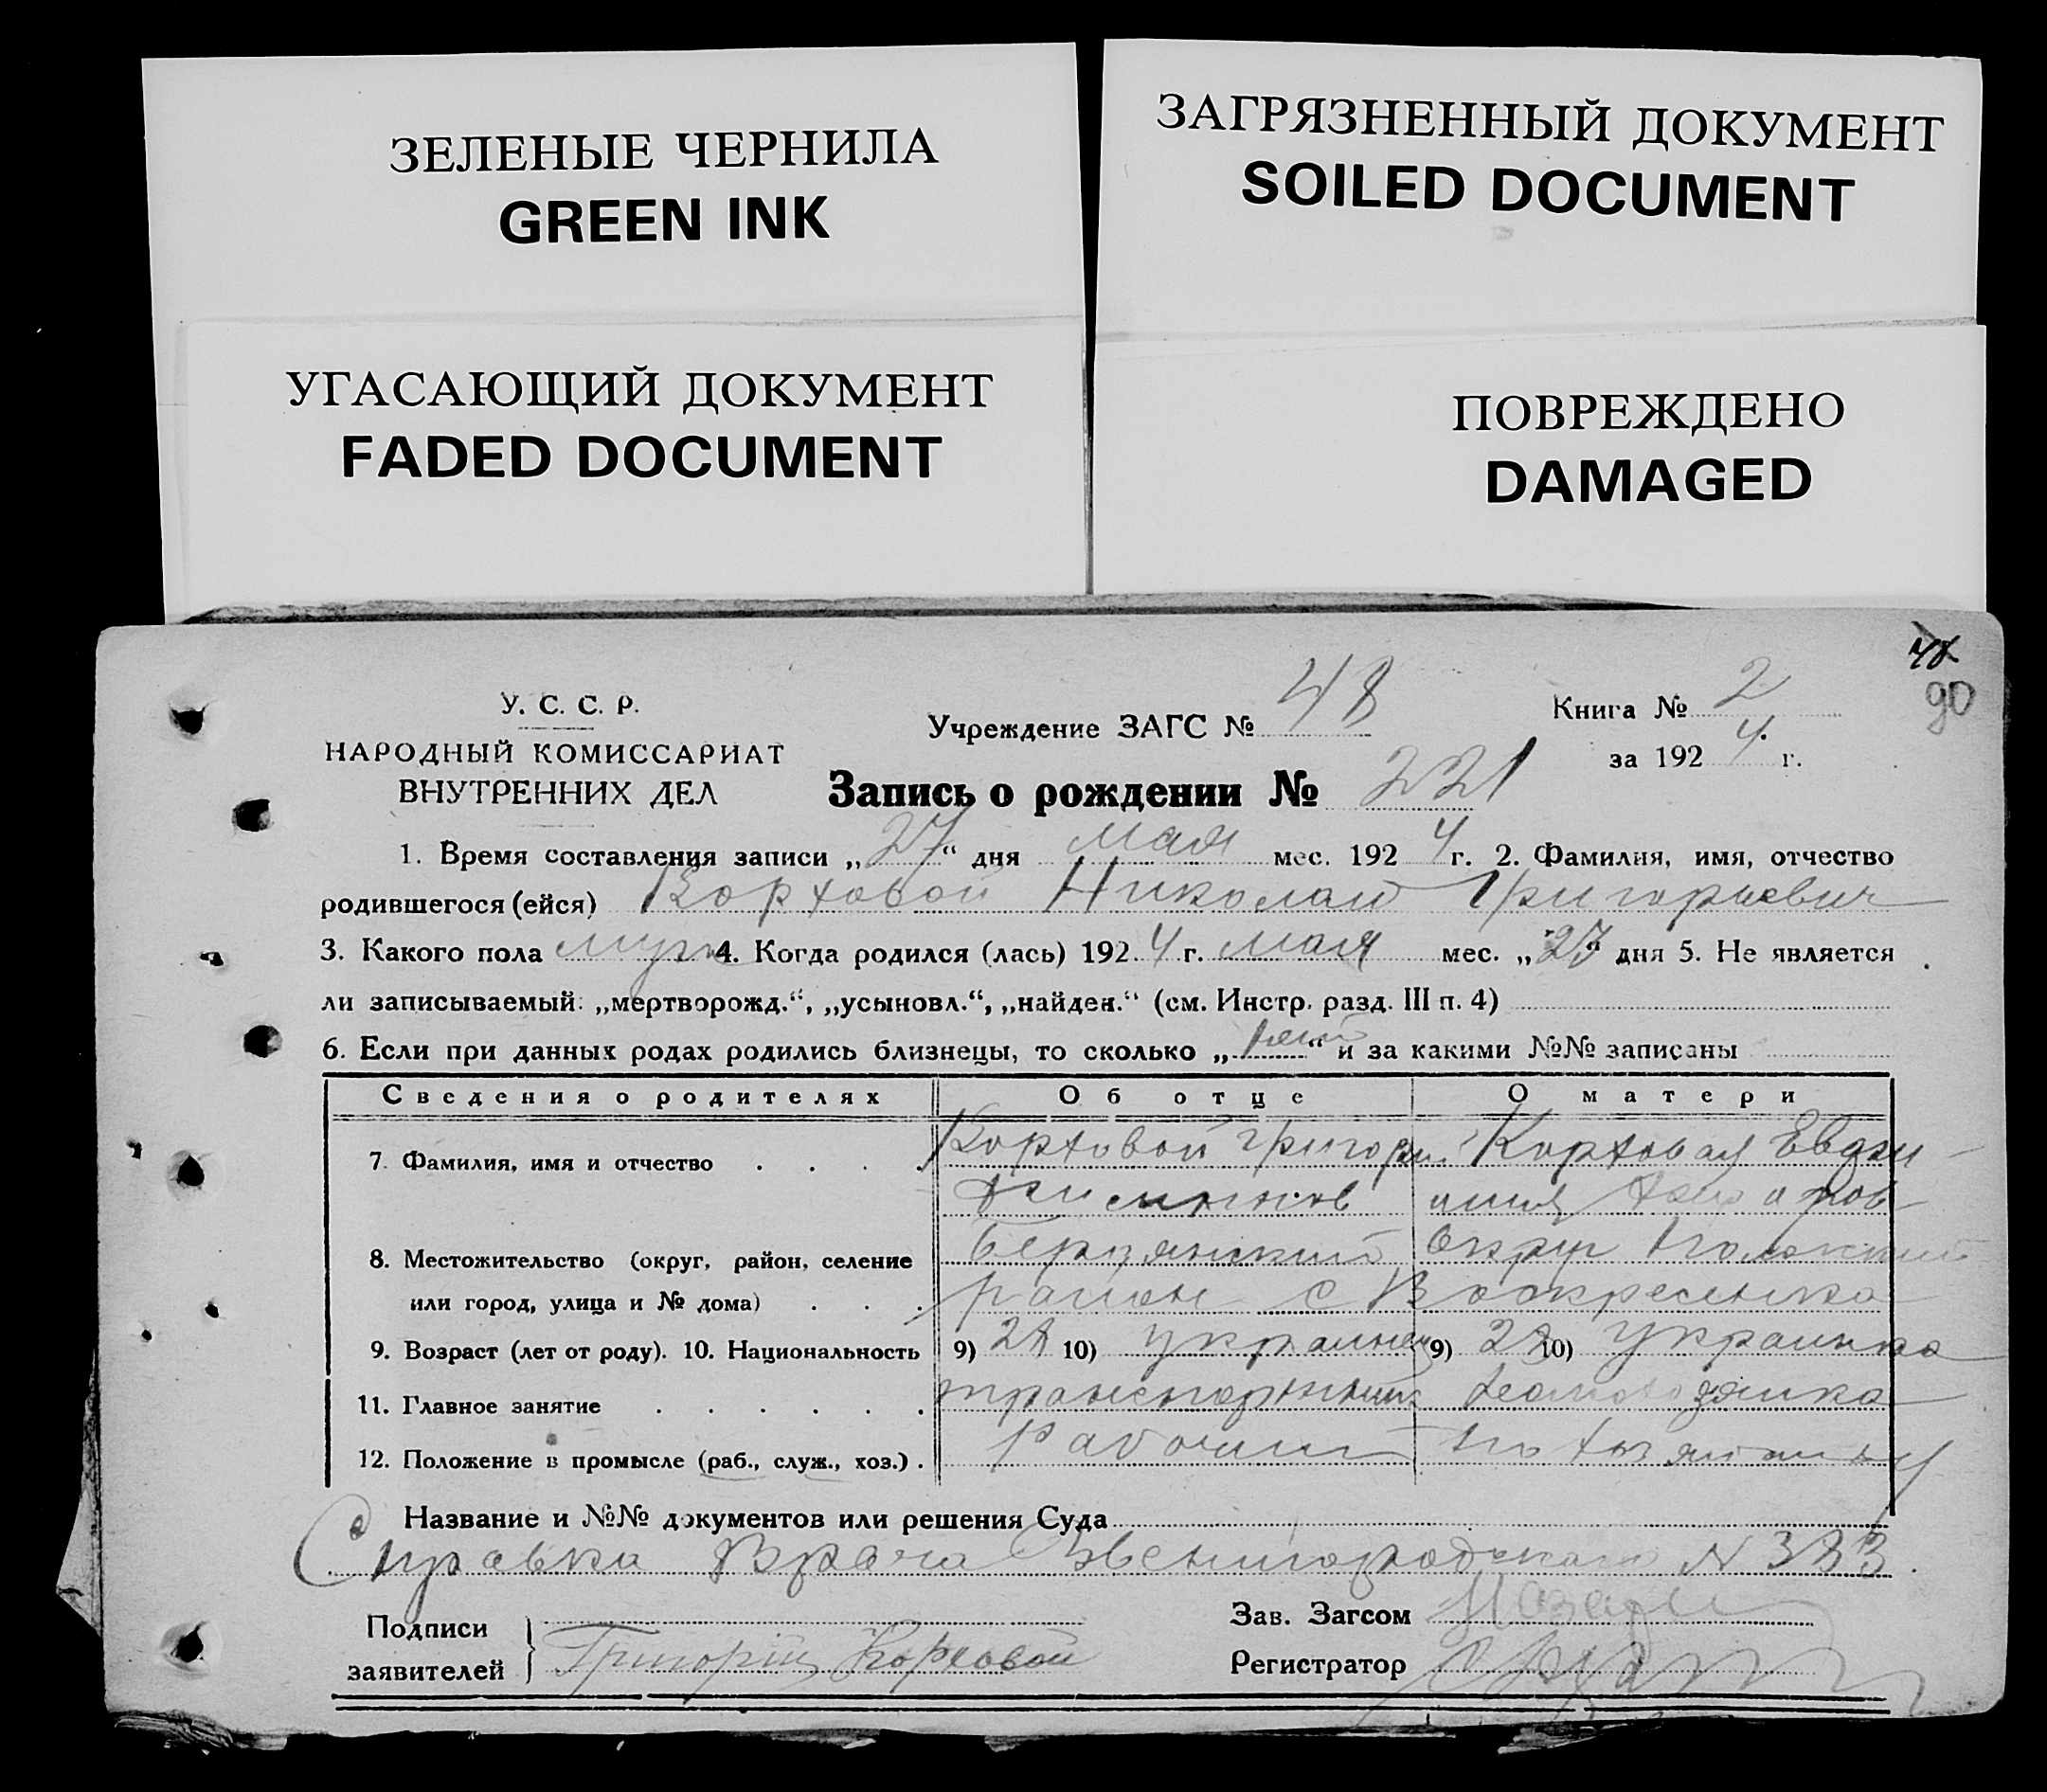 ЗЕЛЕНЫЕ ЧЕРНИЛА
GREEN INK
ЗАГРЯЗНЕННЫЙ ДОКУМЕНТ
SOILED DOCUMENT
УГАСАЮЩИЙ ДОКУМЕНТ
FADED DOCUMENT
ПОВРЕЖДЕНО
DAMAGED
90
У. С. С. Р.
НАРОДНЫЙ КОМИССАРИАТ
ВНУТРЕННИХ ДЕЛ
Учреждение ЗАГС № 48
Книга № 2
за 1924 г.
Запись о рождении № 221
1. Время составления записи „27“ дня мая мес. 1924 г. 2. Фамилия, имя, отчество
родившегося (ейся) Корховой Николай Григорьевич
3. Какого пола муж 4. Когда родился (лась) 1924 г. мая мес. „27“ дня 5. Не является
ли записываемый: „мертворожд.“, „усыновл.“, „найден.“ (см. Инстр. разд. III п. 4)
6. Если при данных родах родились близнецы, то сколько „нет“ и за какими №№ записаны
Сведения о родителях Об отце О матери
7. Фамилия, имя и отчество . . . . Корховой Григори Корховая Евдки
8. Местожительство (округ, район, селение Бердянский округ
или город, улица и № дома) . . . район с Воскресенка
9. Возраст (лет от роду). 10. Национальность 9) 28 10) украинец 9) 28 10) украинка
11. Главное занятие . . . . . . транспортник домохозяйка
12. Положение в промысле (раб., служ., хоз.) . Рабочий по хозяйству
Название и №№ документов или решения Суда
Справка Врача Звенигородского N 383
Подписи
заявителей } Григорий Корховой
Зав. Загсом
Регистратор